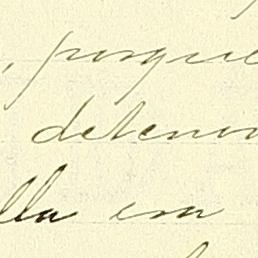 , porque
deteni
lla era